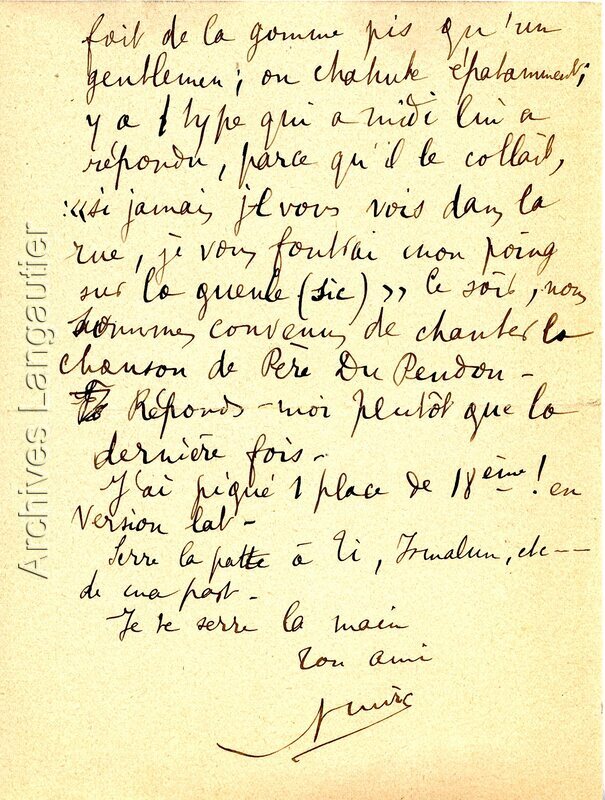 fait de la gomme pis qu'un
gentlemen ; on chahute épatamment ;
y a 1 type qui a midi lui a
répondu, parce qu'il le collait,
: « si jamais je vous vois dans la
rue, je vous foutrai mon poing
sur la gueule (sic) » Ce soir, nous
sommes convenus de chanter la
chanson de Père Du Pendon -
Réponds-moi plutôt que la
dernière fois -
J'ai piqué 1 place de 18ème ! en
Version lat -
Serre la patte à Ti, , etc --
de ma part -
Je te serre la main
Ton ami
Archives Langautier